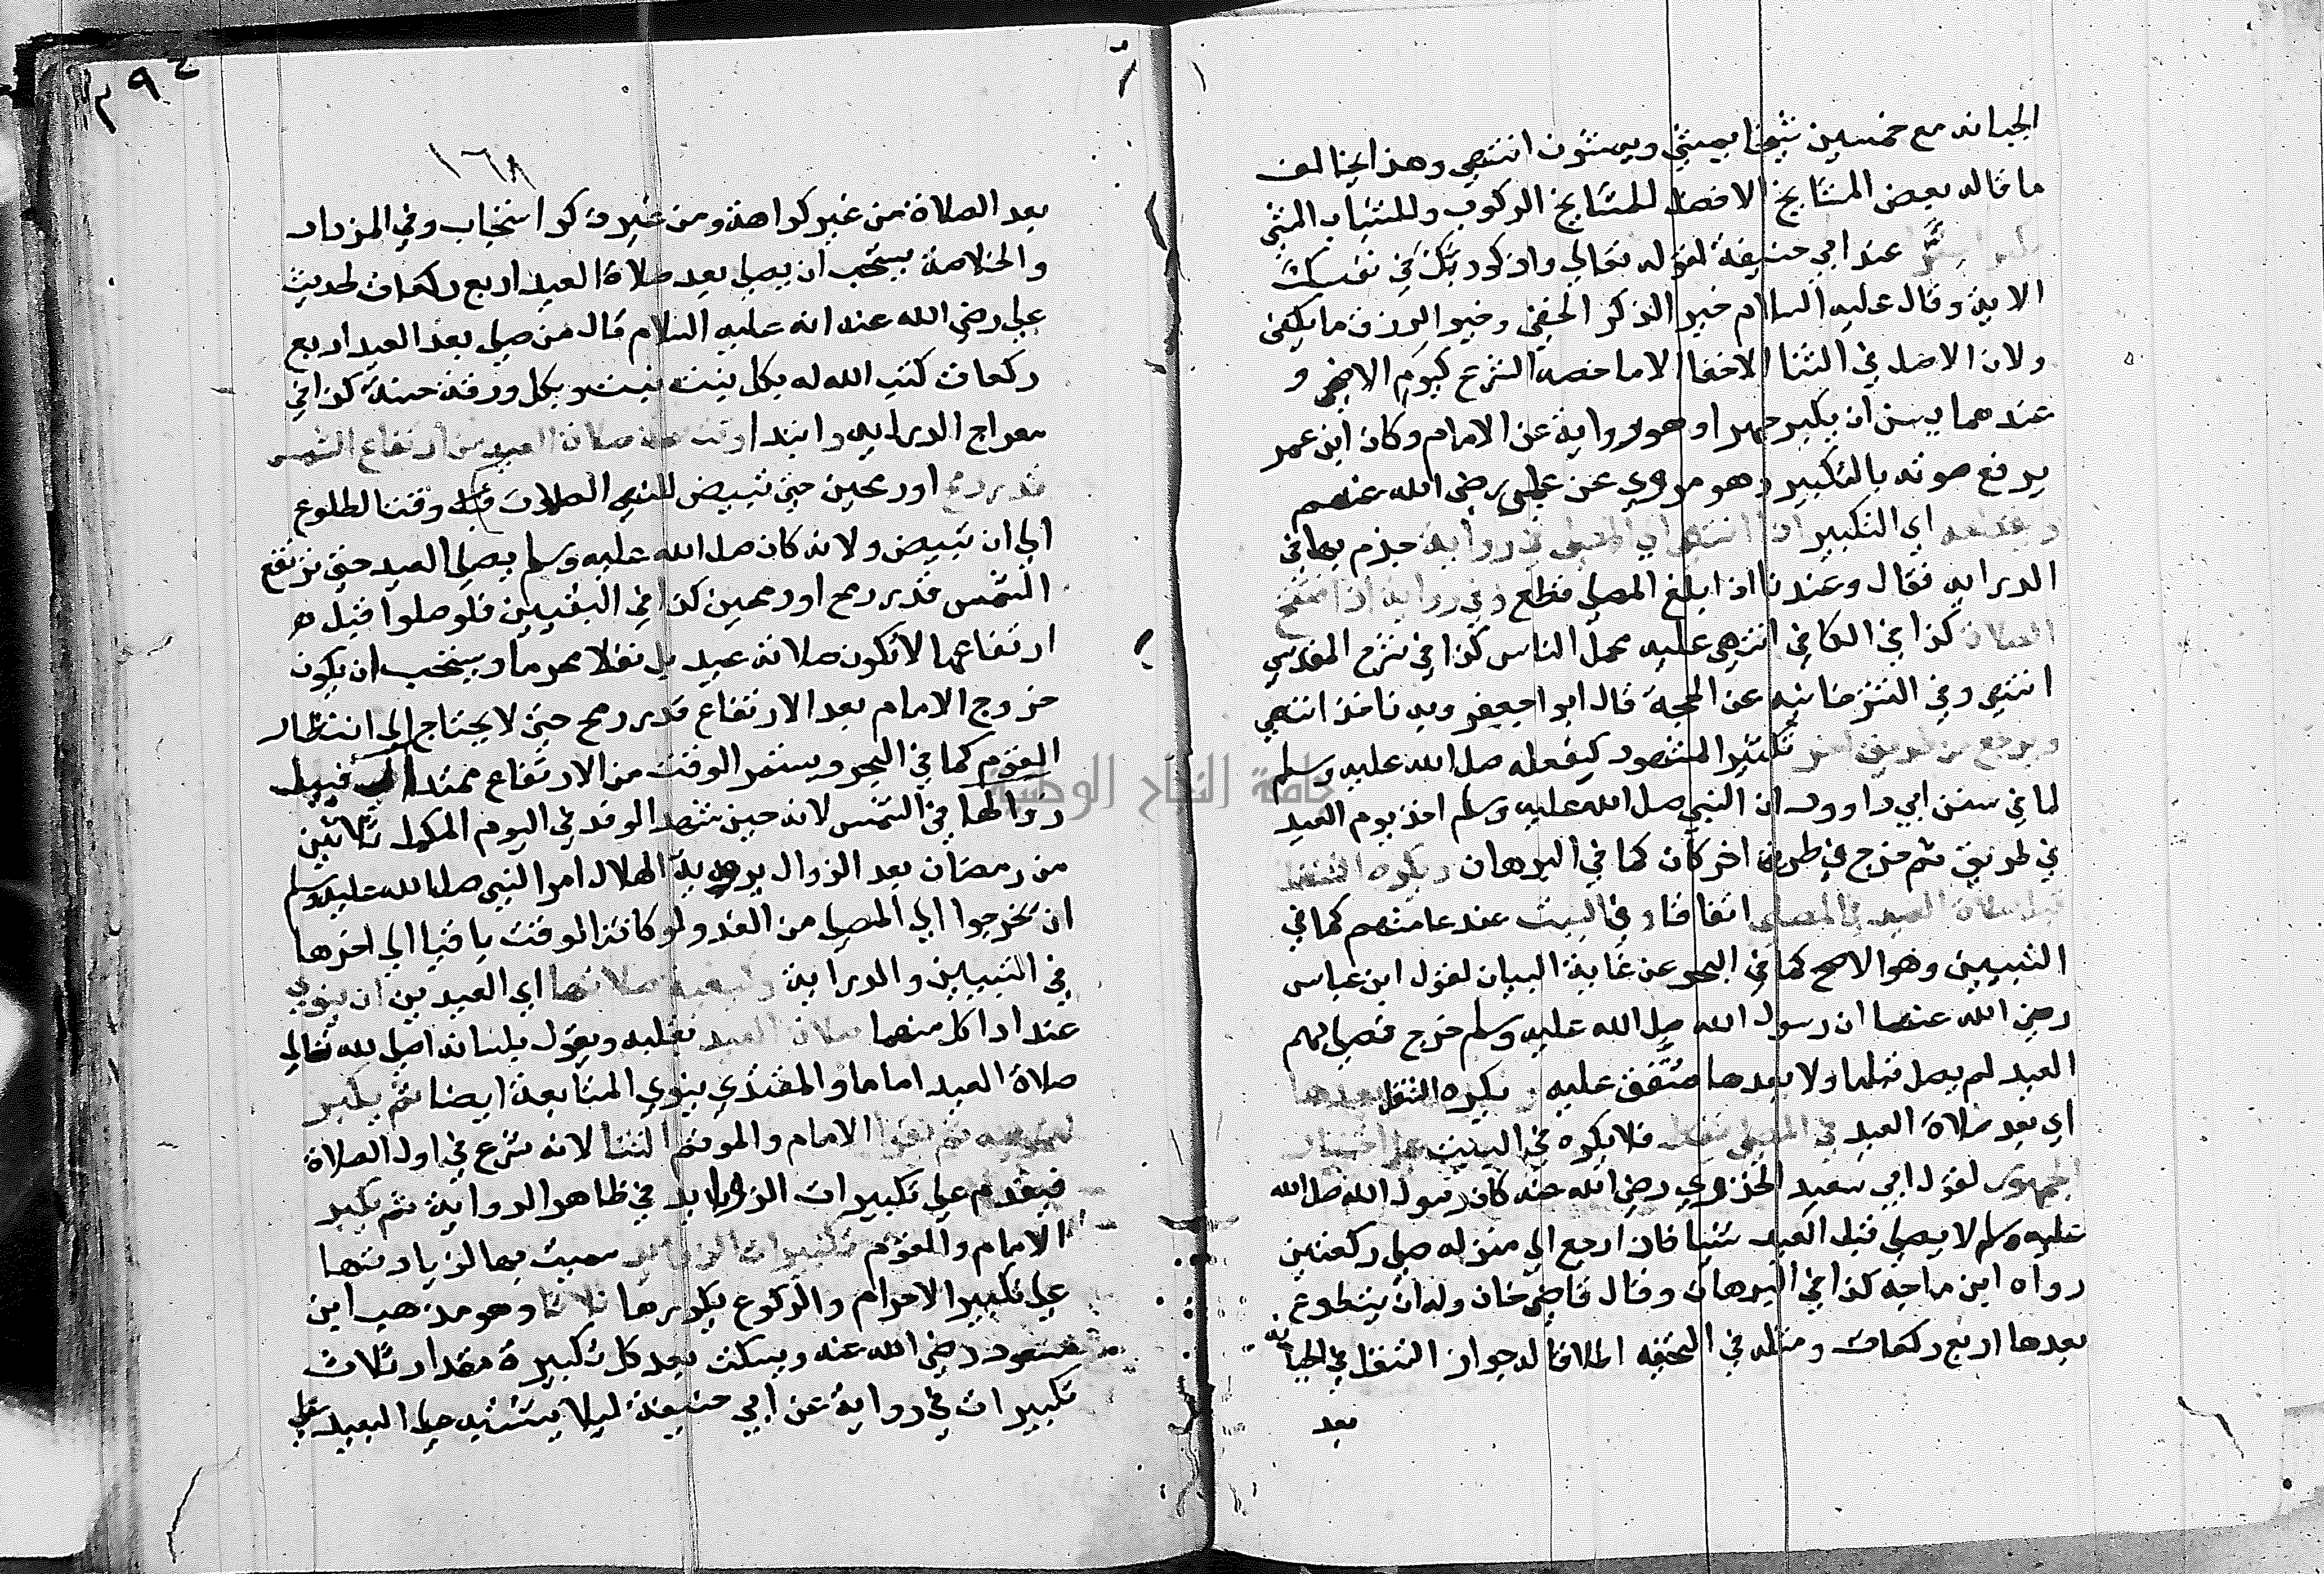 الجبانه مع خمسين شيخا يمشي ويمشون انتهي وهذا يخالف
ما قاله بعض المشايخ الافضل للمشايخ الركوب وللشباب المشي
سرا عند ابي حنيفة لقوله تعالي واذكر ربك في نفسك
الاية وقال عليه السلام خير الذكر الخفي وخير الرزق ما يكفي
ولان الاصل في الثنا الاخفا الا ما خصه الشرع كيوم الاضحي و
عندهما يسن ان يكبر جهرا وهو رواية عن الامام وكان ابن عمر
يرفع صوته بالتكبير وهو مروي عن علي رضي الله عنهم
اي التكبير اذا انتهي الي المصلي في رواية جزم بها في
الدرايه فقال وعندنا اذا بلغ المصلي قطع وفي رواية اذا افتتح
الصلاة كذا في الكافي انتهي عليه عمل الناس كذا في شرح المقدسي
انتهي وفي التترخانيه عن الحجة قال ابو اجعفر وبه ناخذ انتهي
ويرجع من طريق اخر تكثير المشهود كيفعله صلي الله عليه وسلم
لما في سنن ابي داوود ان النبي صلي الله عليه وسلم اخذ يوم العيد
في طريق ثم خرج في طريق اخر كان كما في البرهان ويكره التنفل
قبل صلاة العيد في المصلي اتفاقا وفي البيت عند عامتهم كما في
التبيين وهو الاصح كما في البحر عن غاية البيان لقول ابن عباس
رضي الله عنهما ان رسول الله صلي الله عليه وسلم خرج فصلي بهم
العيد لم يصل قبلها ولا بعدها متفق عليه ويكره التنفل بعدها
اي بعد صلاة العيد في المصلي فلا يكره في البيت علي اختيار
الجمهور لقول ابي سعيد الخذوري رضي الله عنه كان رسول الله صلي الله
عليه وسلم لا يصلي قبل العيد شيا فان ارجع الي منزله صلي ركعتين
رواه ابن ماجه كذا في البرهان وقال قاضي خان وله ان يتطوع
بعدها اربع ركعات ومثله في التحفه الملاقا لد جواز التنفل في الجبانه
بعد
٣٩٤
١٦٨
بعد الصلاة من غير كراهة ومن غير ذكر استحباب وفي المزداد
والخلاصة يستحب ان يصلي بعد صلاة العيد اربع ركعات لحديث
علي رضي الله عنه انه عليه السلام قال من صلي بعد العيد اربع
ركعات كتب الله له بكل نبت نبت وبكل ورقة حسنة كذا في
معراج الدرايه وابتدا وقت صلاة العيد من ارتفاع الشمس
قدر رمح او رمحين حتي تبيض للنهي الصلات قبله وقتنا لطلوع
الي ان تبيض ولانه كان صلي الله عليه وسلم يصلي العيد حتي ترتفع
الشمس قدر رمح او رمحين كذا في التبيين فلو صلوا قبل
ارتفاعها لا تكون صلاته عيد بل نفلا محرما ويستحب ان يكون
خروج الامام بعد الارتفاع قدر رمح حتي لا يحتاج الي انتظار
القوم كما في البحر ويستمر الوقت من الارتفاع ممتدا الي قبيل
زوالها في الشمس لانه حين شهد الوفد في اليوم المكمل ثلاثين
من رمضان بعد الزوال بروية الهلال امر النبي صلي الله عليه وسلم
ان يخرجوا الي المصلي من الغد ولو كانت الوقت باقيا الي اخرها
في التبيين والدراية وكيفية صلاتها اي العيدين ان ينوي
عند ادا كل منهما صلاة العيد بقلبه ويقول بلسانه اصلي لله تعالي
صلاة العيد اماما والمقتدي ينوي المتابعة ايضا ثم يكبر
للتحريمه ثم يقرا الامام والموتم الثنا لانه شرع في اول الصلاة
فيقدم علي تكبيرات الزوايد في ظاهر الرواية ثم يكبر
الامام والقوم تكبيرات الزوايد سميت بها لزيادتها
علي تكبير الاحرام والركوع يكررها ثلاثا وهو مذهب ابن
مسعود رضي الله عنه ويسكت بعد كل تكبيرة مقدار ثلاث
تكبيرات في رواية عن ابي حنيفة ليلا يشتبه علي البعيد